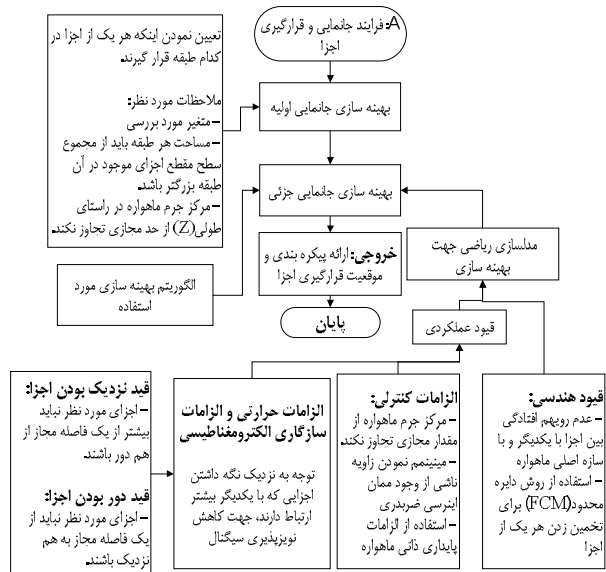 A: فرایند جانمایی و قرارگیری
اجزا
تعیین نمودن اینکه هر یک از اجزا در
کدام طبقه قرار گیرند.
ملاحظات مورد نظر:
–متغیر مورد بررسی
–مساحت هر طبقه باید از مجموع
سطح مقطع اجزای موجود در آن
طبقه بزرگتر باشد.
–مرکز جرم ماهواره در راستای
طولی(Z) از حد مجازی تجاوز نکند.
بهینه سازی جانمایی اولیه
بهینه سازی جانمایی جزئی
مدلسازی ریاضی جهت
بهینه سازی
خروجی: ارائه پیکره بندی و
موقعیت قرارگیری اجزا
الگوریتم بهینه سازی مورد
استفاده
پایان
قیود عملکردی
قید نزدیک بودن اجزا:
– اجزای مورد نظر نباید
بیشتر از یک فاصله مجاز از
هم دور باشند.
قید دور بودن اجزا:
– اجزای مورد نظر نباید از
یک فاصله مجاز به هم
نزدیک باشند.
الزامات حرارتی و الزامات
سازگاری الکترومغناطیسی
توجه به نزدیک نگه داشتن
اجزایی که با یکدیگر بیشتر
ارتباط دارند، جهت کاهش
نویزپذیری سیگنال
الزامات کنترلی:
– مرکز جرم ماهواره از
مقدار مجازی تجاوز نکند.
– مینیمم نمودن زاویه
ناشی از وجود ممان
اینرسی ضربدری
– استفاده از الزامات
پایداری ذاتی ماهواره
قیود هندسی:
– عدم رویهم افتادگی
بین اجزا با یکدیگر و با
سازه اصلی ماهواره
– استفاده از روش دایره
محدود(FCM) برای
تخمین زدن هر یک از
اجزا